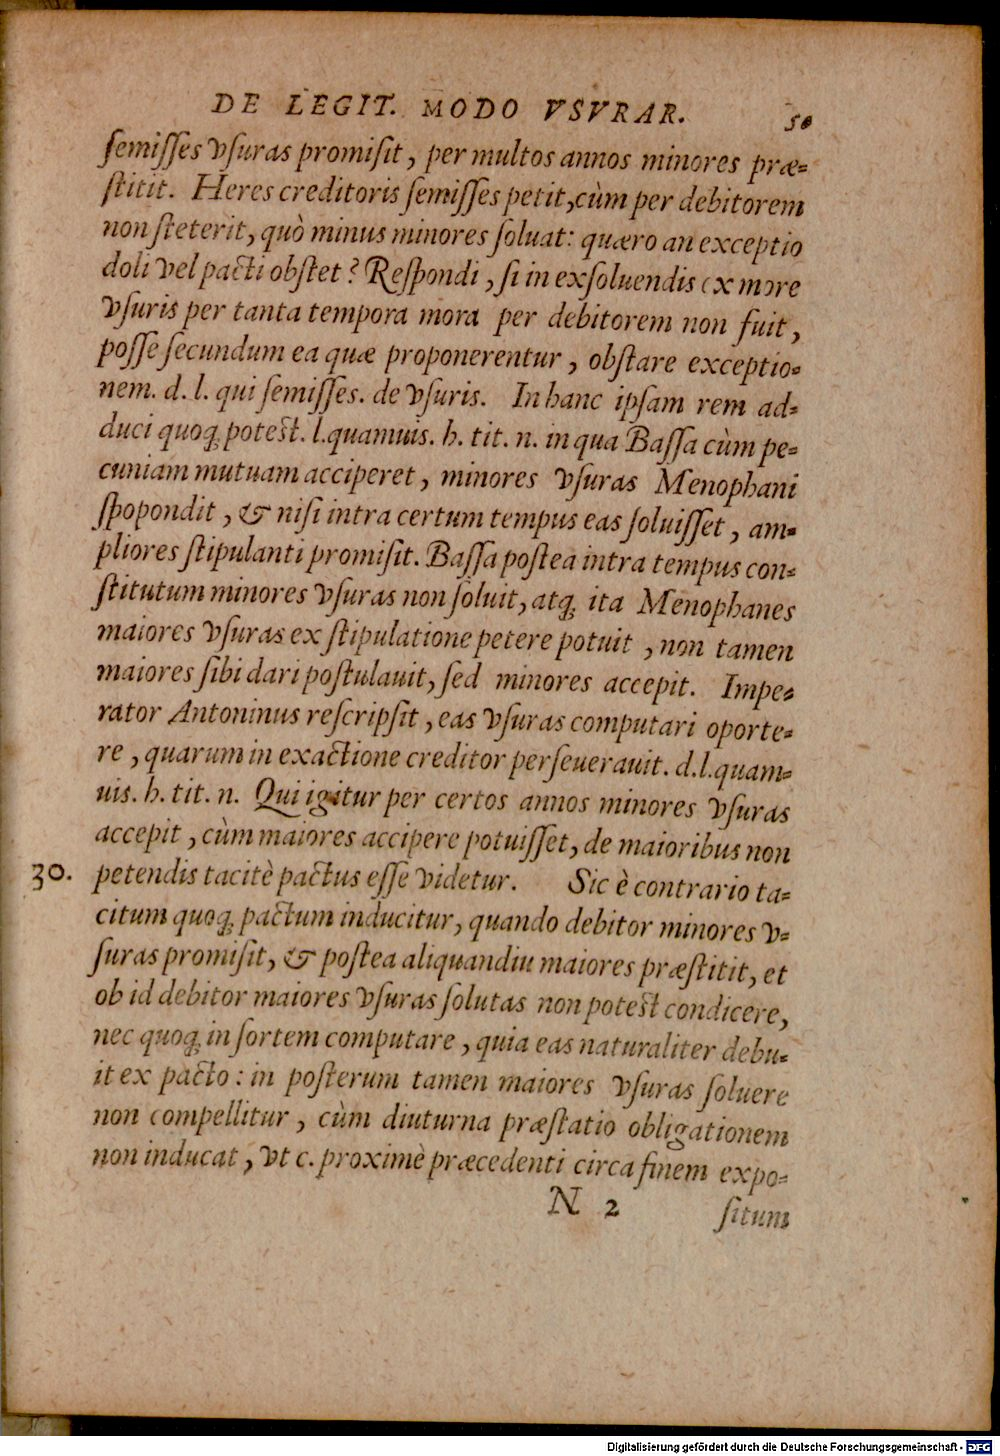 DE LEGIT. MODO VSVRAR. 50
ſemiſſes vſuras promiſit, per multos annos minores præ-
ſtitit. Heres creditoris ſemiſſes petit, cùm per debitorem
non ſteterit, quò minus minores ſoluat: quæro an exceptio
doli vel pacti obſtet? Reſpondi, ſi in exſoluendis ex more
vſuris per tanta tempora mora per debitorem non fuit,
poſſe ſecundum ea quæ proponerentur, obſtare exceptio-
nem. d. l. qui ſemiſſes. de vſuris. In hanc ipſam rem ad-
duci quoq; poteſt. l. quamuis. h. tit. n. in qua Baſſa cùm pe-
cuniam mutuam acciperet, minores vſuras Menophani
ſpopondit, & niſi intra certum tempus eas ſoluiſſet, am-
pliores ſtipulanti promiſit. Baſſa poſtea intra tempus con-
ſtitutum minores vſuras non ſoluit, atq; ita Menophanes
maiores vſuras ex ſtipulatione petere potuit, non tamen
maiores ſibi dari poſtulauit, ſed minores accepit. Impe-
rator Antoninus reſcripſit, eas vſuras computari oporte-
re, quarum in exactione creditor perſeuerauit. d. l. quam-
uis. h. tit. n. Qui igitur per certos annos minores vſuras
accepit, cùm maiores accipere potuiſſet, de maioribus non
30. petendis tacitè pactus eſſe videtur. Sic è contrario ta-
citum quoq; pactum inducitur, quando debitor minores v-
ſuras promiſit, & poſtea aliquandiu maiores præſtitit, et
ob id debitor maiores vſuras ſolutas non poteſt condicere,
nec quoq; in ſortem computare, quia eas naturaliter debu-
it ex pacto: in poſterum tamen maiores vſuras ſoluere
non compellitur, cùm diuturna præſtatio obligationem
non inducat, vt c. proximè præcedenti circa finem expo-
N 2 ſitum
Digitalisierung gefördert durch die Deutsche Forschungsgemeinschaft - DFG